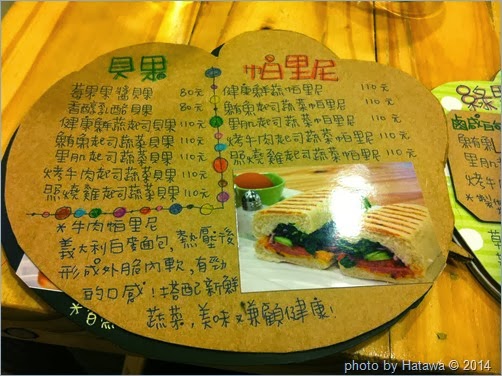 貝果
莓果果醬貝果 80元
香醇乳酪貝果 80元
健康鮮蔬起司貝果 110元
鮪魚起司蔬菜貝果 110元
里肌起司蔬菜貝果 110元
烤牛肉起司蔬菜貝果 110元
照燒雞起司蔬菜貝果 110元
帕里尼
健康鮮蔬帕里尼 110元
鮪魚起司蔬菜帕里尼 110元
里肌起司蔬菜帕里尼 110元
烤牛肉起司蔬菜帕里尼 110元
照燒雞起司蔬菜帕里尼 110元
*牛肉帕里尼
義大利白蛋麵包,熱壓後
形成外脆內軟,有勁
的口感!搭配新鮮
蔬菜,美味又兼顧健康!
photo by Hatawa © 2014